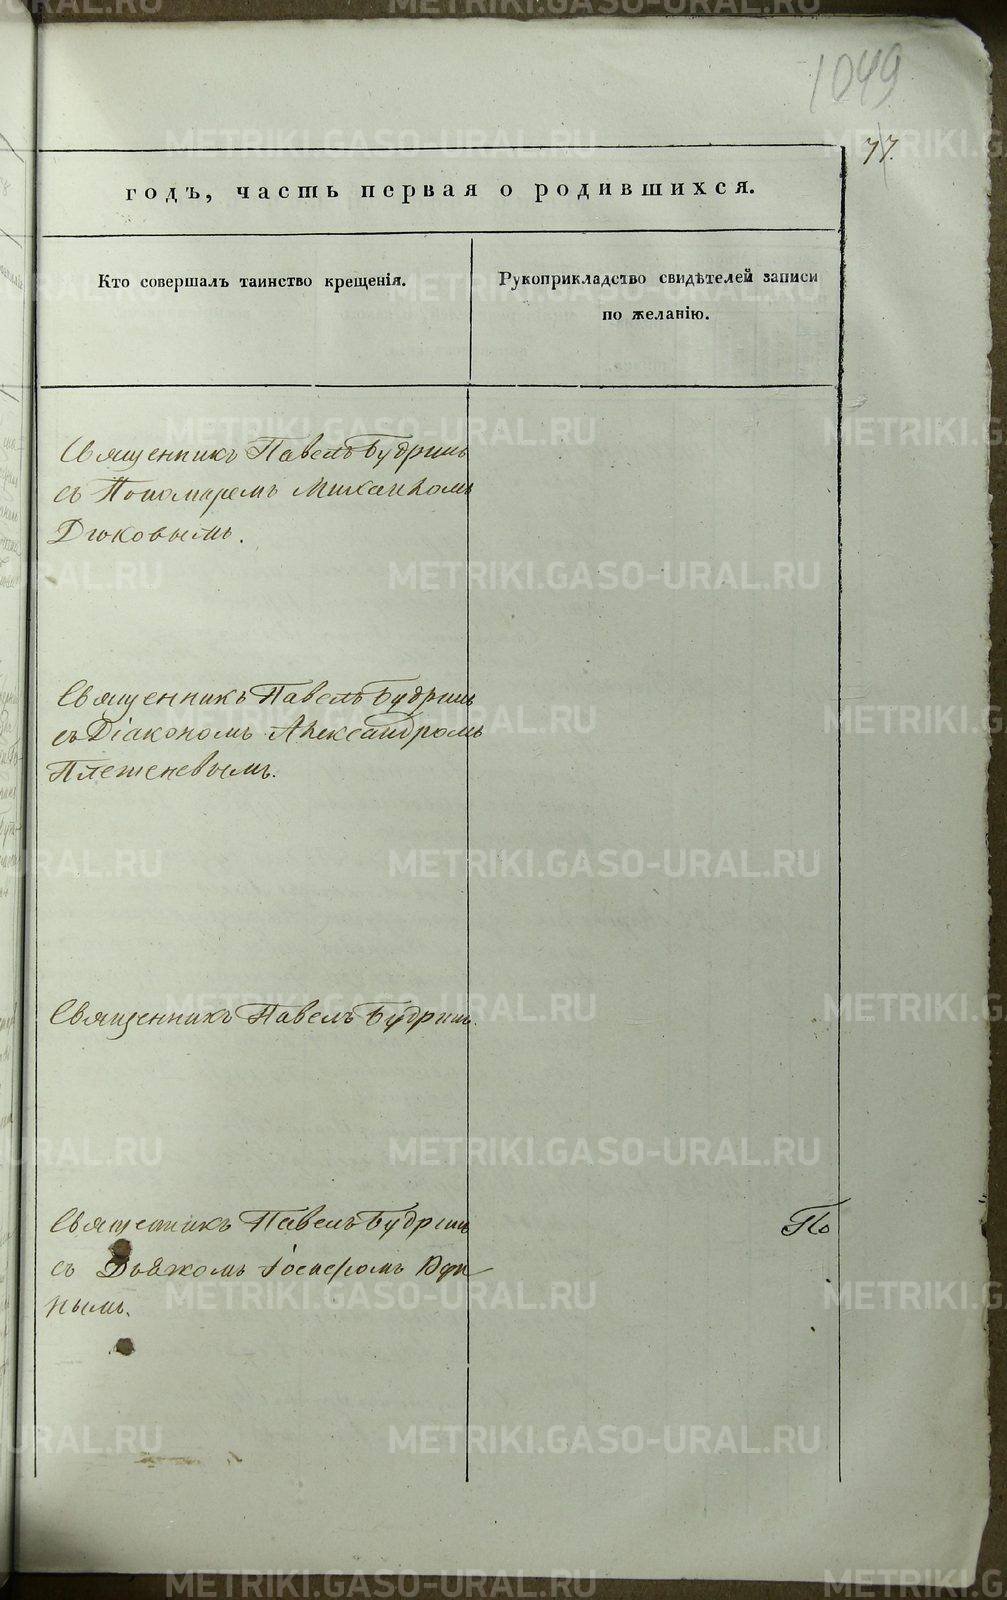 1049
77.
годъ, часть первая о родившихся.
Кто совершалъ таинство крещенія.
Рукоприкладство свидѣтелей записи
по желанію.
Священникъ Павелъ Будринъ
съ Пономаремъ Михаиломъ
Дюковымъ.
Священникъ Павелъ Будринъ
съ Діакономъ Александромъ
Плетеневымъ.
Священникъ Павелъ Будринъ.
Священникъ Павелъ Будринъ
съ Дьячкомъ
нымъ.
По
METRIKI.GASO-URAL.RU